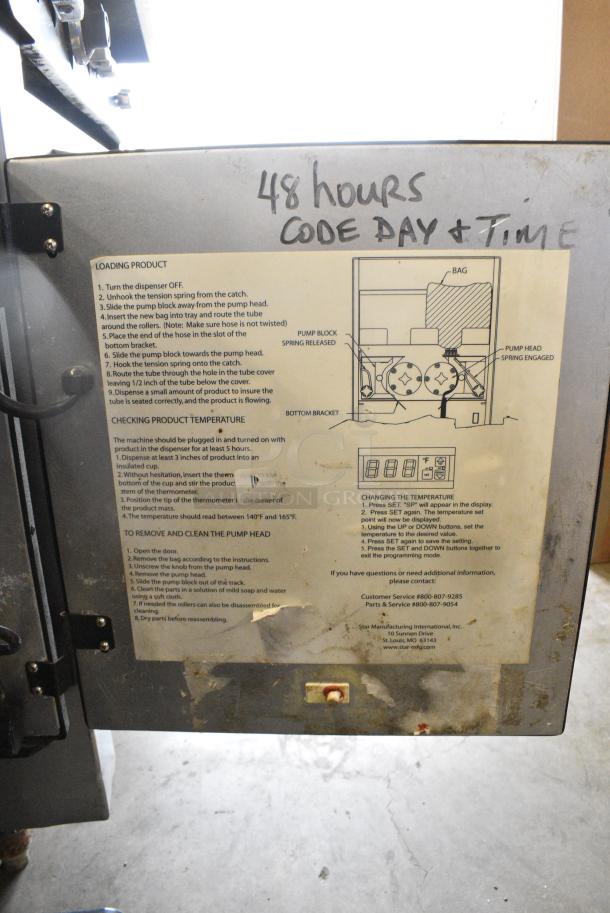 48 hours
CODE DAY & TIME
LOADING PRODUCT
1. Turn the dispenser OFF.
2. Unhook the tension spring from the catch.
3. Slide the pump block away from the pump head.
4. Insert the new bag into tray and route the tube
around the rollers. (Note: Make sure hose is not twisted)
5. Place the end of the hose in the slot of the
bottom bracket.
6. Slide the pump block towards the pump head.
7. Hook the tension spring onto the catch.
8. Route the tube through the hole in the tube cover
leaving 1/2 inch of the tube below the cover.
9. Dispense a small amount of product to insure the
tube is seated correctly, and the product is flowing.
CHECKING PRODUCT TEMPERATURE
The machine should be plugged in and turned on with
product in the dispenser for at least 5 hours.
1. Dispense at least 3 inches of product into an
insulated cup.
2. Without hesitation, insert the therm
bottom of the cup and stir the product
stem of the thermometer.
3. Position the tip of the thermometer in the center of
the product mass.
4. The temperature should read between 140°F and 165°F.
TO REMOVE AND CLEAN THE PUMP HEAD
1. Open the door.
2. Remove the bag according to the instructions.
3. Unscrew the knob from the pump head.
4. Remove the pump head.
5. Slide the pump block out of the track.
6. Clean the parts in a solution of mild soap and water
using a soft cloth.
7. If needed the rollers can also be disassembled for
cleaning.
8. Dry parts before reassembling.
BAG
PUMP BLOCK
SPRING RELEASED
PUMP HEAD
SPRING ENGAGED
BOTTOM BRACKET
888 °F
SET
CHANGING THE TEMPERATURE
1. Press SET. "SP" will appear in the display.
2. Press SET again. The temperature set
point will now be displayed.
3. Using the UP or DOWN buttons, set the
temperature to the desired value.
4. Press SET again to save the setting.
5. Press the SET and DOWN buttons together to
exit the programming mode.
If you have questions or need additional information,
please contact:
Customer Service #800-807-9285
Parts & Service #800-807-9054
Star Manufacturing International, Inc.
10 Sunnen Drive
St. Louis, MO 63143
www.star-mfg.com